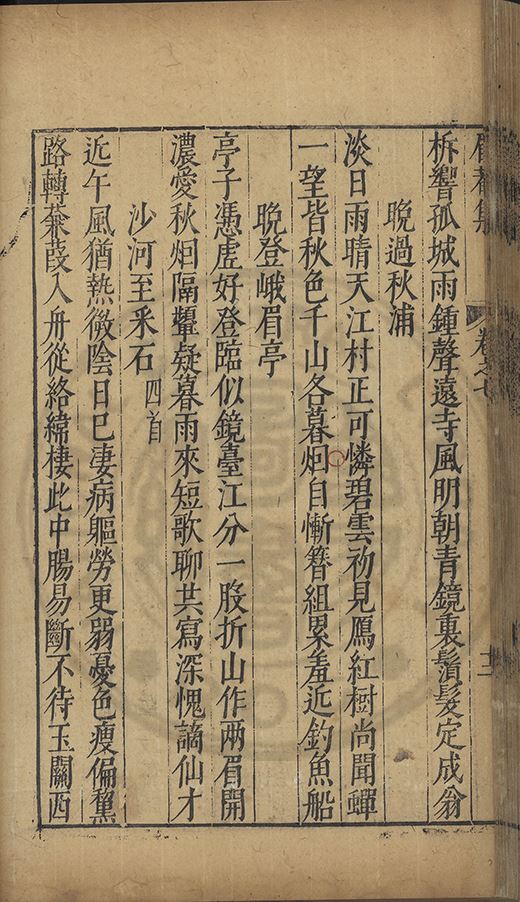 卷之七
十二
柝響孤城雨鍾聲遠寺風明朝青鏡裏鬚髮定成翁
晚過秋浦
淡日雨晴天江村正可憐碧雲初見鴈紅樹尚聞蟬
一望皆秋色千山各暮烟自慚簪組累羞近釣魚船
晚登峨眉亭
亭子憑虗好登臨似鏡臺江分一股折山作兩眉開
濃愛秋烟隔顰疑暮雨來短歌聊共寫深愧謫仙才
沙河至釆石 四首
近午風猶熱微陰日巳淒病軀勞更弱憂色瘦偏黧
路轉蒹葭入舟從絡緯棲此中腸易斷不待玉關西